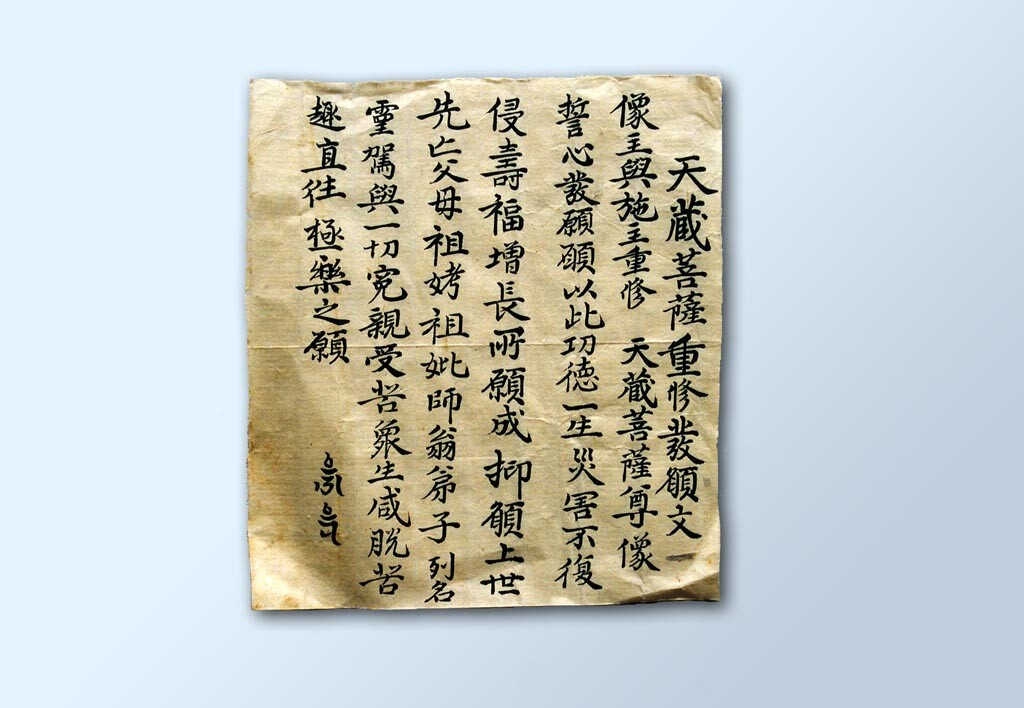 天蔵菩薩重修發願文
像主與施主重修 天蔵菩薩尊像
誓心發願願以此功德一生災害不復
侵壽福增長所願成抑願上世
先亡父母祖考祖妣師翁弟子列名
靈駕與一切寃親受苦衆生咸脱苦
趣直往極樂之願